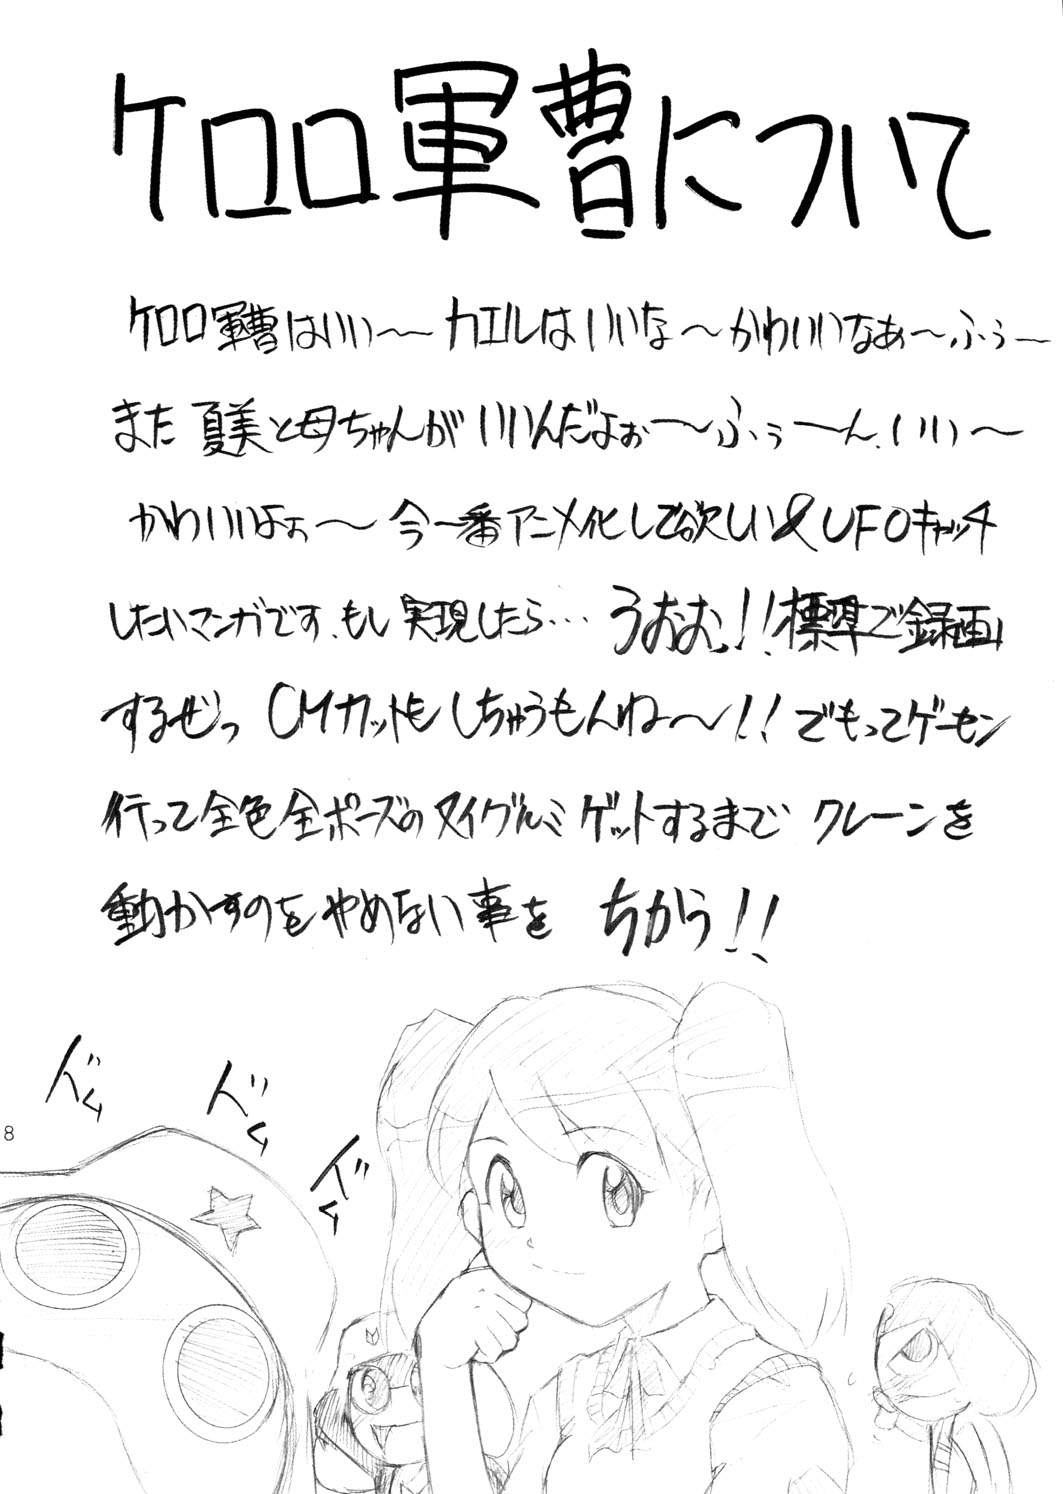 ケロロ軍曹について
ケロロ軍曹はいい〜カエルはいいな〜かわいいなあ〜ふぅ〜
また夏美と母ちゃんがいいんだよぉ〜ふぅーん、いい〜
かわいいよぉ〜今一番アニメ化して欲しい&UFOキャッチ
したいマンガです、もし実現したら…うおお!!標準で録画
するぜっCMカットもしちゃうもんね〜!!でもってゲーセン
行って全色全ポーズのヌイグルミゲットするまでクレーンを
動かすのをやめない事をちかう!!
ドム
ドム
ドム
8